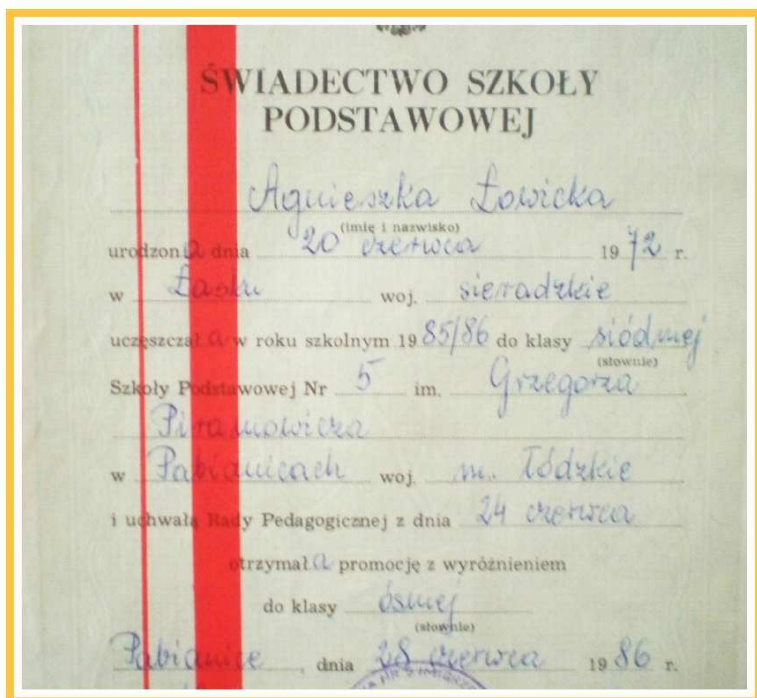 ŚWIADECTWO SZKOŁY
PODSTAWOWEJ
Agnieszka Łowicka
(imię i nazwisko)
urodzona dnia 20 czerwca 1972 r.
w Łasku woj. sieradzkie
uczęszczała w roku szkolnym 1985/86 do klasy siódmej
(słownie)
Szkoły Podstawowej Nr 5 im. Grzegorza
Piramowicza
w Pabianicach woj. m. Łódzkie
i uchwałą Rady Pedagogicznej z dnia 24 czerwca
otrzymała promocję z wyróżnieniem
do klasy ósmej
(słownie)
Pabianice, dnia 28 czerwca 1986 r.